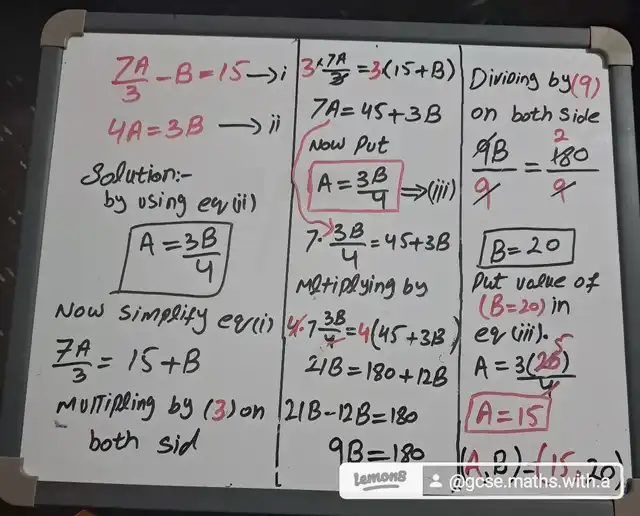 7A/3 - B = 15 → i
4A = 3B → ii
Solution:-
by using eq(ii)
A = 3B/4
Now simplify eq(i)
7A/3 = 15 + B
Multipling by (3) on
both sid
3 × 7A/3 = 3(15 + B)
7A = 45 + 3B
Now Put
A = 3B/4 ⇒ (iii)
7 · 3B/4 = 45 + 3B
Mltiplying by
4 · 7 3B/4 = 4(45 + 3B)
21B = 180 + 12B
21B - 12B = 180
9B = 180
Dividing by (9)
on both side
9B/9 = 180/9
2
B = 20
Put value of
(B = 20) in
eq(iii).
5
A = 3(20)/4
A = 15
(A, B) = (15, 20)
lemon8 @gcse.maths.with.a